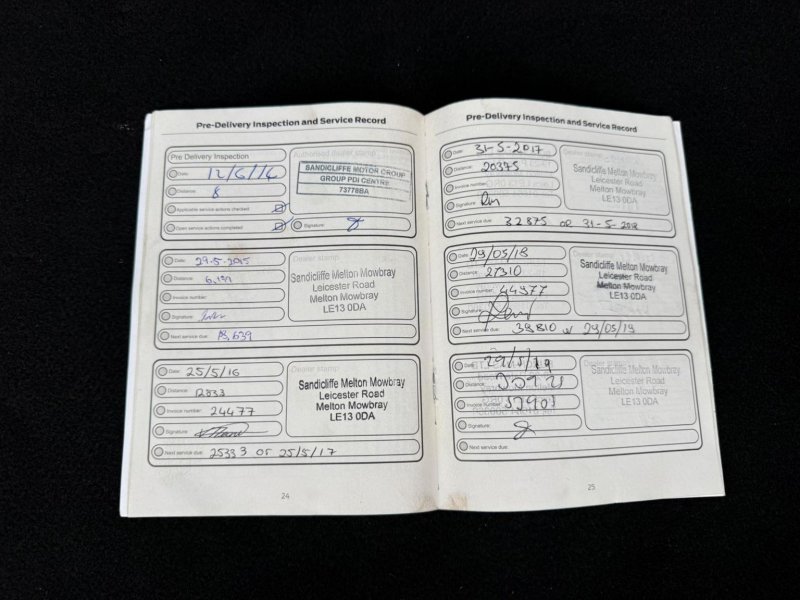 Pre-Delivery Inspection and Service Record
Pre Delivery Inspection
Date: 12/6/14
Distance: 8
Applicable service actions checked
Open service actions completed
Authorised dealer stamp
SANDICLIFFE MOTOR GROUP
GROUP PDI CENTRE
73778BA
Signature:
Date: 29.5.2015
Distance: 6,139
Invoice number:
Signature:
Next service due: 18,639
Dealer stamp
Sandicliffe Melton Mowbray
Leicester Road
Melton Mowbray
LE13 0DA
Date: 25/5/16
Distance: 12833
Invoice number: 24477
Signature:
Next service due: 25333 or 25/5/17
Dealer stamp
Sandicliffe Melton Mowbray
Leicester Road
Melton Mowbray
LE13 0DA
24
Pre-Delivery Inspection and Service Record
Date: 31-5-2017
Distance: 20375
Invoice number:
Signature:
Next service due: 32875 OR 31-5-2018
Dealer stamp
Sandicliffe Melton Mowbray
Leicester Road
Melton Mowbray
LE13 0DA
Date: 29/05/18
Distance: 27310
Invoice number: 44977
Signature:
Next service due: 39810 or 29/05/19
Sandicliffe Melton Mowbray
Leicester Road
Melton Mowbray
LE13 0DA
Date: 29/5/19
Distance:
Invoice number: 52901
Signature:
Next service due:
Sandicliffe Melton Mowbray
Leicester Road
Melton Mowbray
LE13 0DA
25